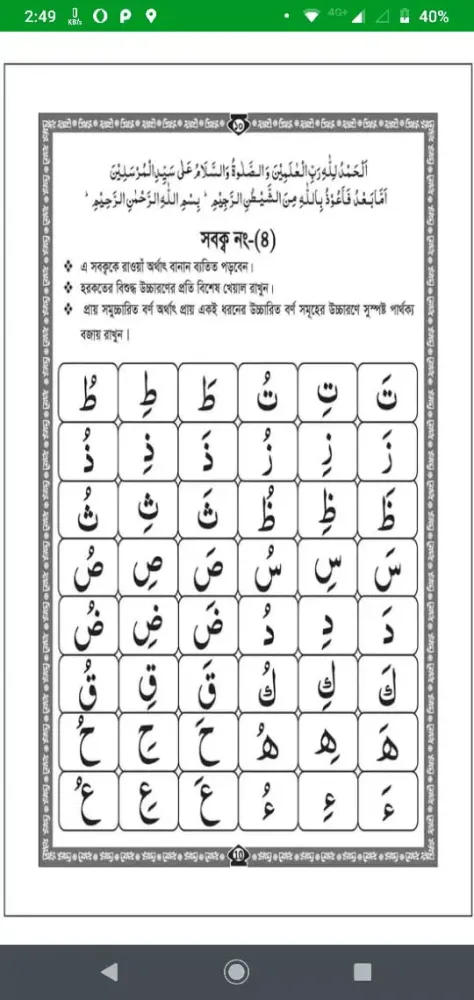 2:49 0 KB/s 4G+ 40%
১০
اَلْحَمْدُ لِلّٰهِ رَبِّ الْعٰلَمِيْنَ وَالصَّلٰوةُ وَالسَّلَامُ عَلٰى سَيِّدِ الْمُرْسَلِيْنَ
اَمَّا بَعْدُ فَاَعُوْذُ بِاللّٰهِ مِنَ الشَّيْطٰنِ الرَّجِيْمِ ؕ بِسْمِ اللّٰهِ الرَّحْمٰنِ الرَّحِيْمِ ؕ
সবক্ব নং-(৪)
❖ এ সবক্বকে রাওয়াঁ অর্থাৎ বানান ব্যতিত পড়বেন।
❖ হরকতের বিশুদ্ধ উচ্চারণের প্রতি বিশেষ খেয়াল রাখুন।
❖ প্রায় সমুচ্চারিত বর্ণ অর্থাৎ প্রায় একই ধরনের উচ্চারিত বর্ণ সমূহের উচ্চারণে সুস্পষ্ট পার্থক্য
বজায় রাখুন।
تَ تِ تُ طَ طِ طُ
زَ زِ زُ ذَ ذِ ذُ
ظَ ظِ ظُ ثَ ثِ ثُ
سَ سِ سُ صَ صِ صُ
دَ دِ دُ ضَ ضِ ضُ
كَ كِ كُ قَ قِ قُ
هَ هِ هُ حَ حِ حُ
ءَ ءِ ءُ عَ عِ عُ
10